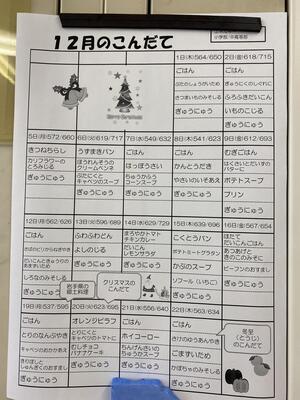 小学部/中高等部
12月のこんだて
Merry Christmas
1日(木)564/650
ごはん
ぶたのしょうがいため
さつまいものみそしる
ぎゅうにゅう
2日(金)618/715
ごはん
ぎゅうにくのしぐれに
ふろふきだいこん
いちごのじる
ぎゅうにゅう
5日(月)572/660
きつねちらし
カリフラワーの
とろみじる
ぎゅうにゅう
6日(火)619/717
うずまきパン
ほうれんそうの
クリームペンネ
ぶたにくと
キャベツのスープ
ぎゅうにゅう
7日(水)549/632
ごはん
はっぽうさい
ちゅうかふう
コーンスープ
ぎゅうにゅう
8日(木)541/623
ごはん
かんとうだき
やさいのいそあえ
ぎゅうにゅう
9日(金)612/693
むぎごはん
はくさいとだいずの
バターに
ポテトスープ
プリン
ぎゅうにゅう
12日(月)562/626
ごはん
ぎゅうにゅう
13日(火)596/689
ふわふわどん
よしのじる
ぎゅうにゅう
14日(水)629/729
まろやかトマト
チキンカレー
だいこん
レモンサラダ
ぎゅうにゅう
15日(木)639/696
こくとうパン
ポテトミートグラタン
かぶのスープ
ソフール(いちご)
ぎゅうにゅう
16日(金)567/654
ほたて
だいこんごはん
あつあげと
きのこのみそに
ビーフンのおすまし
ぎゅうにゅう
岩手県の
郷土料理
クリスマスの
こんだて
19日(月)537/595
ごはん
とりのなんぶやき
キャベツのおかかあえ
ぎゅうにゅう
20日(火)623/695
オレンジピラフ
とりにくと
キャベツのトマトに
むしチョコ
バナナケーキ
ぎゅうにゅう
21日(水)556/640
ごはん
ホイコーロー
ちんげんさいの
ちゅうかスープ
ぎゅうにゅう
22日(木)563/634
ごはん
さけのゆうあんやき
ごまずいため
かぼちゃのみそしる
ぎゅうにゅう
冬至
(とうじ)
のこんだて